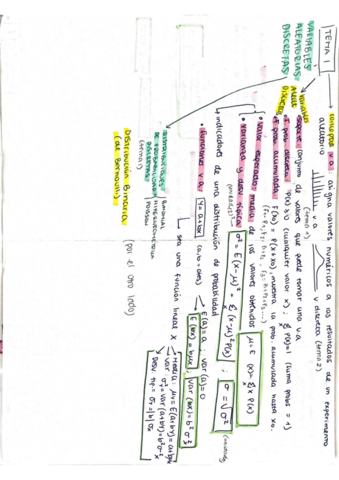 TEMA 1
VARIABLES
ALEATORIAS
DISCRETAS
concepto v.a: asigna valores numéricos a los resultados de un experimento
aleatorio
v. a
v discreta (tema 1)
(tema 2)
Variables
DISCRETAS
soporte: conjunto de valores que puede tomar una v.a
f. prob. discreta: P(x) ≥ 0 (cualquier valor x); Σ P(x) = 1 (suma probs = 1)
f. prob. acumulada: F(x₀) = P(x ≤ x₀), muestra la prob. acumulada hasta x₀.
Valor esperado: media de los valores obtenidos μ = E(x) = Σ x P(x)
Varianza y desv. típica: σ² = E(x-μ)² = Σ (x-μ)² P(x); σ = √σ²
indicadores de una distribución de probabilidad
Funciones v.a: Y = a + bx (a, b = ctes)
E(a) = a; var(a) = 0
E(bx) = bμx; Var(bx) = b²σ²x
sea una función lineal x
Media: μy = E(a+bx) = a + bμx
Var: σ²y = Var(a+bx) = b²σ²x
Desv. típ = σy = |b| σx
DISTRIBUCIONES
DE PROBABILIDAD
DISCRETAS
(tema 1)
BINOMIAL
HIPERGEOMÉTRICA
POISSON
Distribución Binaria
(de Bernoulli)